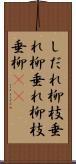 しだれ柳枝垂
れ柳垂れ柳枝
垂柳